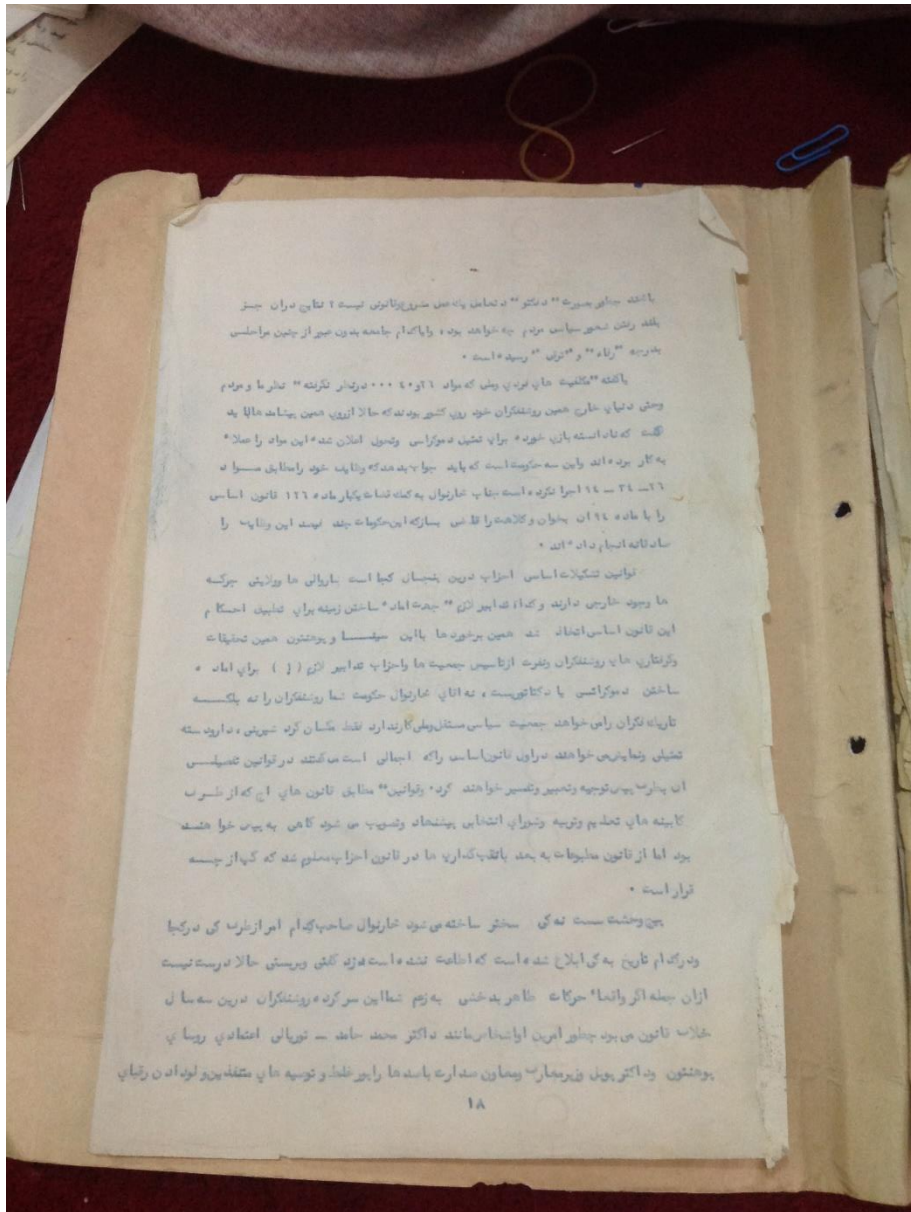 باشند چطور بصورت "دیکتو" د تحامل یك عمل مشروع وقانونی نیست ؟ نتایج دران جسز
بلند رفتن شعور سیاسی مردم چه خواهد بود ه وایاکدام جامعه بدون عبور از چنین مراحلسی
بدرجه "رفاه" و "ترقی" رسیده است ٠
باشته "مکلفیت های فردي وملی که مواد ٢٦و ٤٠ ٠٠٠ درنظر نگرفته" نظر ما و مردم
وحتی دنیای خارج همین روشنفکران خود روی کشور بودند که حالا ازروی همین پیشامد ها باید
گفت که نادانسته بازی خورده برای تمثیل دموکراسی وتحول اعلان شده این مواد را عملاً
به کار برده اند واین سه حکومت است که باید جواب بدهد که وظایف خود رامطابق مسواد
٢٦ــ ٣٤ ــ ٦٤ اجرا نکرده است جناب خارنوال به کمك قضات یکبار ماده ١٢٦ قانون اساسی
را با ماده ٦٤ ان بخوان وکلاهت را قاضی بساز که این حکومات چند فیصد این وظایف را
صادقانه انجام داده اند ٠
قوانین تشکیلات اساسی احزاب درین پنجسال کجا است ښاروالی ها وولایتی جرگسه
ها وجود خارجی دارند و کدام تدابیر لازم "جهت اماده ساختن زمینه برای تطبیق احکام
این قانون اساسی اتخاذ شد همین برخورد ها بااین و پوهنتون همین تحقیقات
وگرفتاری های روشنفکران ونفرت ازتاسیس جمعیت ها واحزاب تدابیر لازم ( ) برای اماده
ساختن دموکراسی یا دکتاتوریست ، نه اقای خارنوال حکومت شما روشنفکران را نه بلکسسه
تاریك فکران رامی خواهد جمعیت سیاسی مستقل وملی کارندارد فقط مگسان گرد شیرینی ، دارودسته
تمثیلی ونمایشی می خواهند دراول قانون اساسی راکه اجمالی است می گفتند در قوانین تفصیلسی
ان بطرف پیش توجیه وتعبیر وتفسیر خواهند کرد٠ وقوانین "مطابق قانون های اچ که از طسرف
کابینه های تعلیم وتربیه وشورای انتخابی پیشنهاد وتصویب می شود گاهی به پیش خواهنسد
بود اما از قانون مطبوعات به بعد باتقب گذاری ها در قانون احزاب معلوم شد که گپ از چسه
قرار است ٠
سست نه کی سختر ساخته می شود خارنوال صاحب کدام امر ازطرف کی درکجا
ودرکدام تاریخ به کی ابلاغ شده است که اطاعت نشده است حالا درست نیست
ازان جمله اگر واقعاً حرکات طاهر بدخشی به زعم شمااین سر کرده روشنفکران درین سه سال
خلاف قانون می بود چطور امرین اواشخاص مانند داکتر محمد حامد ــ توریالی اعتمادي روسای
پوهنتون وداکتر پوپل وزیرمعارف ومعاون صدارت باسد ها راپور غلط و توسیه های متنفذین ولودادن رقبای
١٨